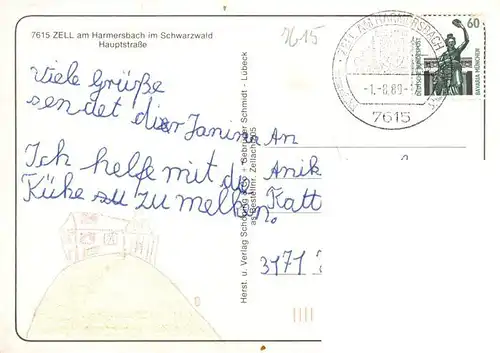 7615 ZELL am Harmersbach im Schwarzwald
Hauptstraße
7615
ZELL AM HARMERSBACH
-1.-8.89-
7615
60
DEUTSCHE BUNDESPOST
BAVARIA MÜNCHEN
Viele Grüße
sendet dir Janina
Ich helfe mit die
Kühe zu melken.
Herst. u. Verlag Schöning & Co + Gebrüder Schmidt - Lübeck
Bestellnr. Zellach
An
Anik
Katt
3171